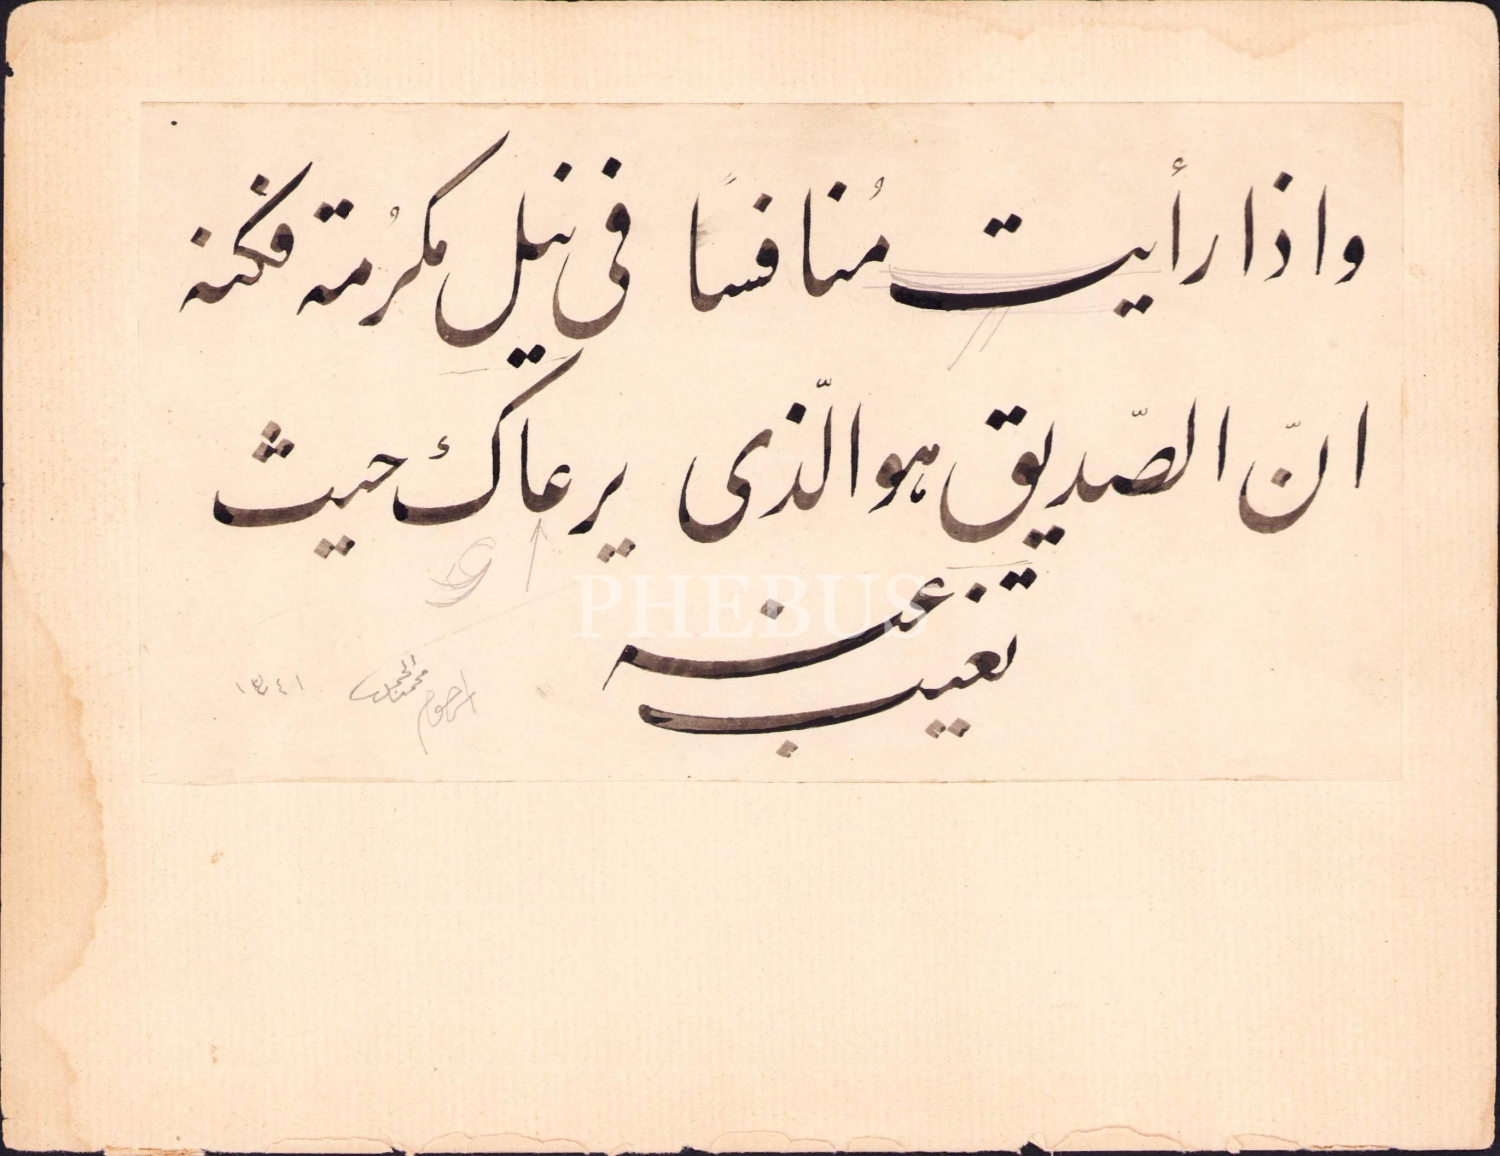 واذا رأيت مُنافسًا فى نيل مكرُمة فكنه
انّ الصّديق هو الّذى يرعاك حيث
تغيب عنه
PHEBUS
١٣٤١